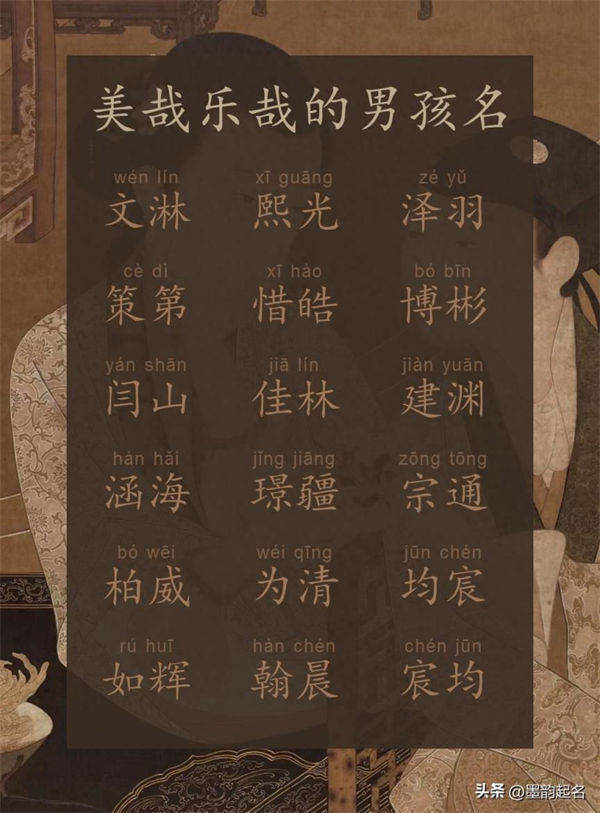 美哉乐哉的男孩名
wén lín xī guāng zé yǔ
文淋 熙光 泽羽
cè dì xī hào bó bīn
策第 惜皓 博彬
yán shān jiā lín jiàn yuān
闫山 佳林 建渊
hán hǎi jǐng jiāng zōng tōng
涵海 璟疆 宗通
bó wēi wéi qīng jūn chén
柏威 为清 均宸
rú huī hàn chén chén jūn
如辉 翰晨 宸均
头条 @墨韵起名